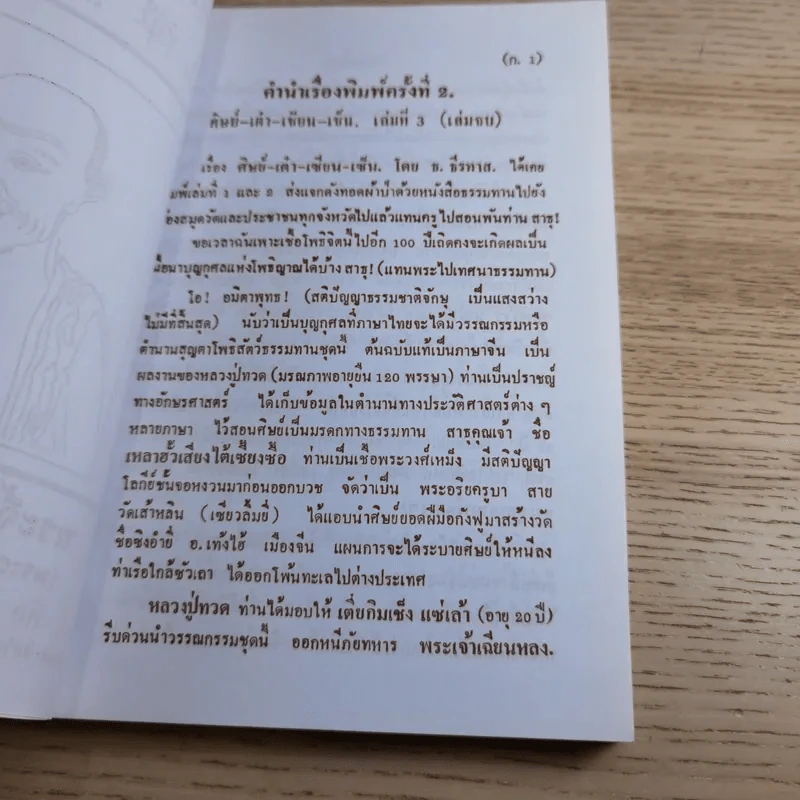 (ก. 1)
คำนำเรื่องพิมพ์ครั้งที่ 2.
ศิษย์-เต๋า-เซียน-เซ็น. เล่มที่ 3 (เล่มจบ)
เรื่อง ศิษย์-เต๋า-เซียน-เซ็น. โดย ช. ธีรทาส. ได้เคย
มพ์เล่มที่ 1 และ 2 ส่งแจกดังทอดผ้าป่าด้วยหนังสือธรรมทานไปยัง
องสมุดวัดและประชาชนทุกจังหวัดไปแล้วแทนครูไปสอนพันท่าน สาธุ!
ขอเวลาฉันเพาะเชื้อโพธิจิตนี้ไปอีก 100 ปีเถิดคงจะเกิดผลเป็น
นื้อนาบุญกุศลแห่งโพธิญาณได้บ้าง สาธุ! (แทนพระไปเทศนาธรรมทาน)
โอ! อมิตาพุทธ! (สติปัญญาธรรมชาติจักษุ เป็นแสงสว่าง
ไม่มีที่สิ้นสุด) นับว่าเป็นบุญกุศลที่ภาษาไทยจะได้มีวรรณกรรมหรือ
ตำนานสุญตาโพธิสัตว์ธรรมทานชุดนี้ ต้นฉบับแท้เป็นภาษาจีน เป็น
ผลงานของหลวงปู่ทวด (มรณภาพอายุยืน 120 พรรษา) ท่านเป็นปราชญ์
ทางอักษรศาสตร์ ได้เก็บข้อมูลในตำนานทางประวัติศาสตร์ต่าง ๆ
หลายภาษา ไว้สอนศิษย์เป็นมรดกทางธรรมทาน สาธุคุณเจ้า ชื่อ
เหลาฮั้วเสี่ยงไต้เซี้ยงซือ ท่านเป็นเชื้อพระวงศ์เหม็ง มีสติปัญญา
โลกีย์ชั้นจอหงวนมาก่อนออกบวช จัดว่าเป็น พระอริยครูบา สาย
วัดเส้าหลิน (เซียวลิ้มยี่) ได้แอบนำศิษย์ยอดฝีมือกังฟูมาสร้างวัด
ชื่อซิงอำยี่ อ.เท้งไฮ้ เมืองจีน แผนการจะได้ระบายศิษย์ให้หนีลง
ท่าเรือใกล้ซัวเถา ได้ออกโพ้นทะเลไปต่างประเทศ
หลวงปู่ทวด ท่านได้มอบให้ เตี่ยกิมเช็ง แซ่เล้า (อายุ 20 ปี)
รีบด่วนนำวรรณกรรมชุดนี้ ออกหนีภัยทหาร พระเจ้าเฉียนหลง.